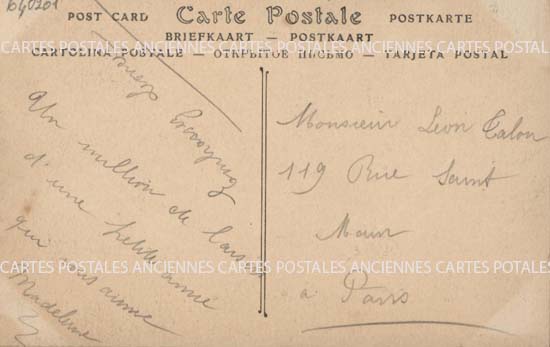 640201
POST CARD Carte Postale POSTKARTE
BRIEFKAART — POSTKAART
CARTOLINA POSTALE — ОТКРЫТОЕ ПИСЬМО — TARJETA POSTAL
CARTES POSTALES ANCIENNES CARTES POSTALES ANCIENNES CARTES POTALES
Un million de
d'une petite amie
qui vous aime
Madeleine
Monsieur Leon Talon
119 Rue Saint
Maur
a Paris
CARTES POSTALES ANCIENNES CARTES POSTALES ANCIENNES CARTES POTALES